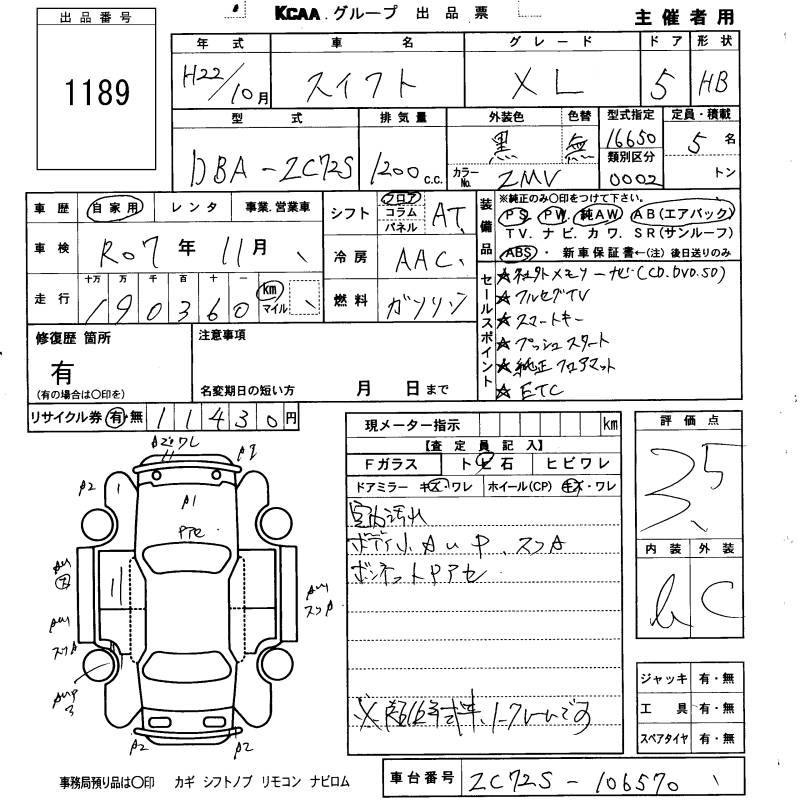 KCAA グループ 出品票
主催者用
出品番号
1189
年式 車名 グレード ドア 形状
H22/10月 スイフト XL 5 HB
型式 排気量 外装色 色替 型式指定 定員・積載
DBA-ZC72S 1200 c.c. 黒 無 16650 5名
カラーNo. ZMV 類別区分 0002 トン
車歴 自家用 レンタ 事業.営業車
シフト フロア コラム パネル AT
車検 R07年 11月
冷房 AAC
走行 十万 万 千 百 十 一
190360 km マイル
燃料 ガソリン
装備品 ※純正のみ〇印をつけて下さい。
PS PW 純AW AB(エアバック)
TV. ナビ. カワ. SR(サンルーフ)
ABS・ 新車保証書←(注) 後日送りのみ
セールスポイント
★社外メモリーナビ(CD.DVD.SD)
★フルセグTV
★スマートキー
★プッシュスタート
★純正フロアマット
★ETC
修復歴 箇所
有
(有の場合は〇印を)
注意事項
名変期日の短い方 月 日まで
リサイクル券 有・無 11430円
現メーター指示 km
【査定員記入】
Fガラス トビ石 ヒビワレ
ドアミラー キズ・ワレ ホイール(CP) キズ・ワレ
室内汚れ
ボディ小AUP、スリA
ボンネットPアセ
評価点
3.5
内装 外装
C
A2 ワレ
A2
A1
A2
A2
ジャッキ 有・無
工具 有・無
スペアタイヤ 有・無
事務局預り品は〇印 カギ シフトノブ リモコン ナビロム
車台番号 ZC72S-106570